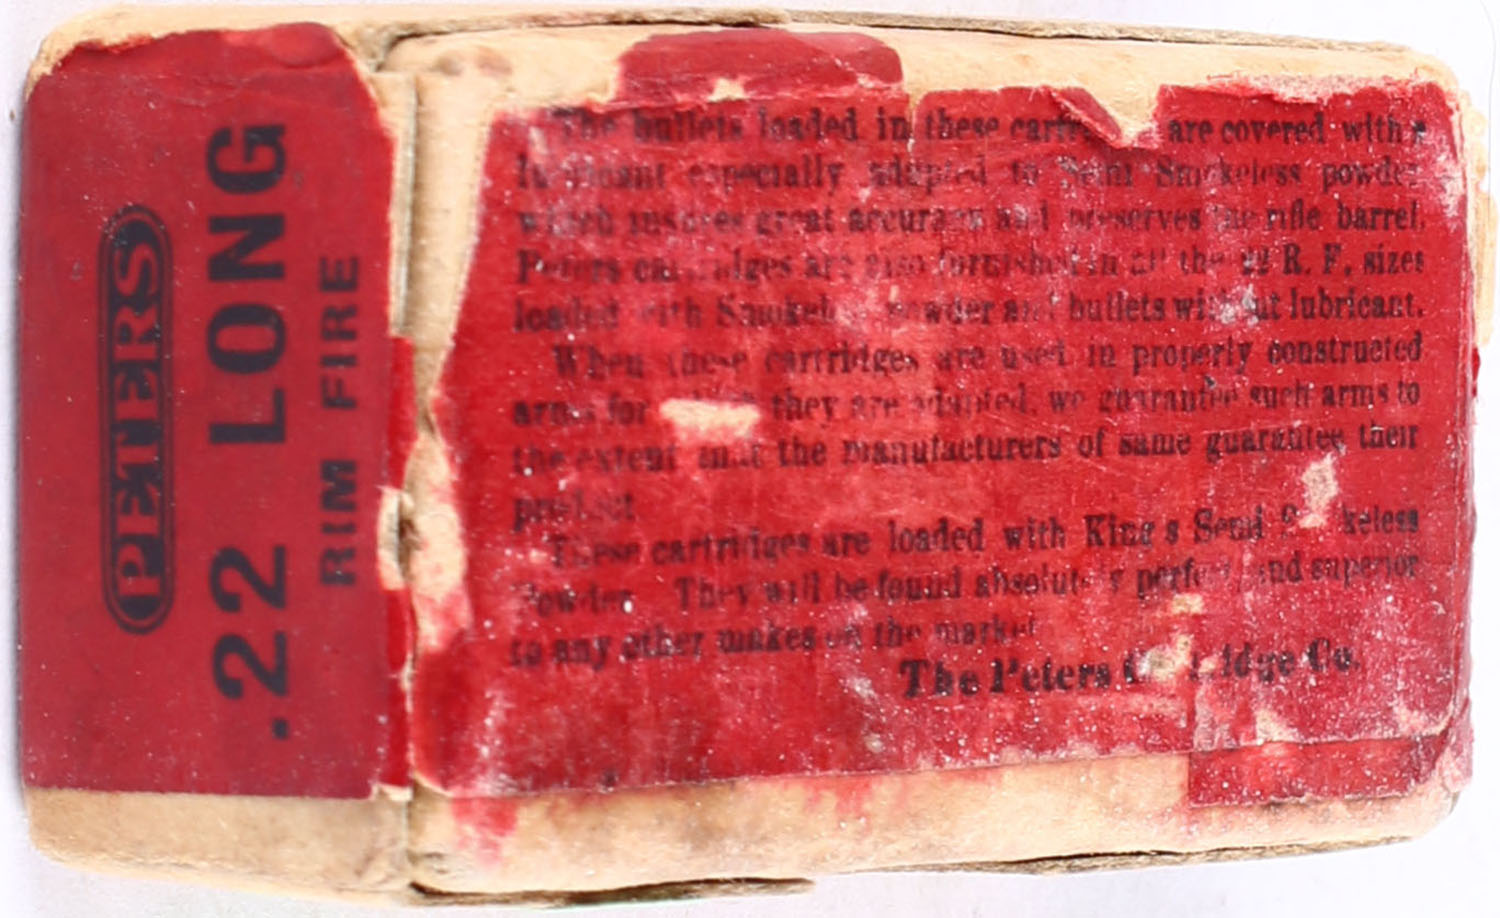 PETERS
.22 LONG
RIM FIRE
The bullets loaded in these are covered with a
lubricant especially adapted to Semi Smokeless powder
which insures great accuracy and preserves the rifle barrel.
Peters cartridges are also furnished in all the 22 R. F. sizes
loaded with Smokeless powder and bullets without lubricant.
When these cartridges are used in properly constructed
arms for they are adapted, we guarantee such arms to
the extent that the manufacturers of same guarantee their
product
These cartridges are loaded with King's Semi Smokeless
Powder. They will be found absolutely perfect and superior
to any other makes on the market
The Peters Cartridge Co.